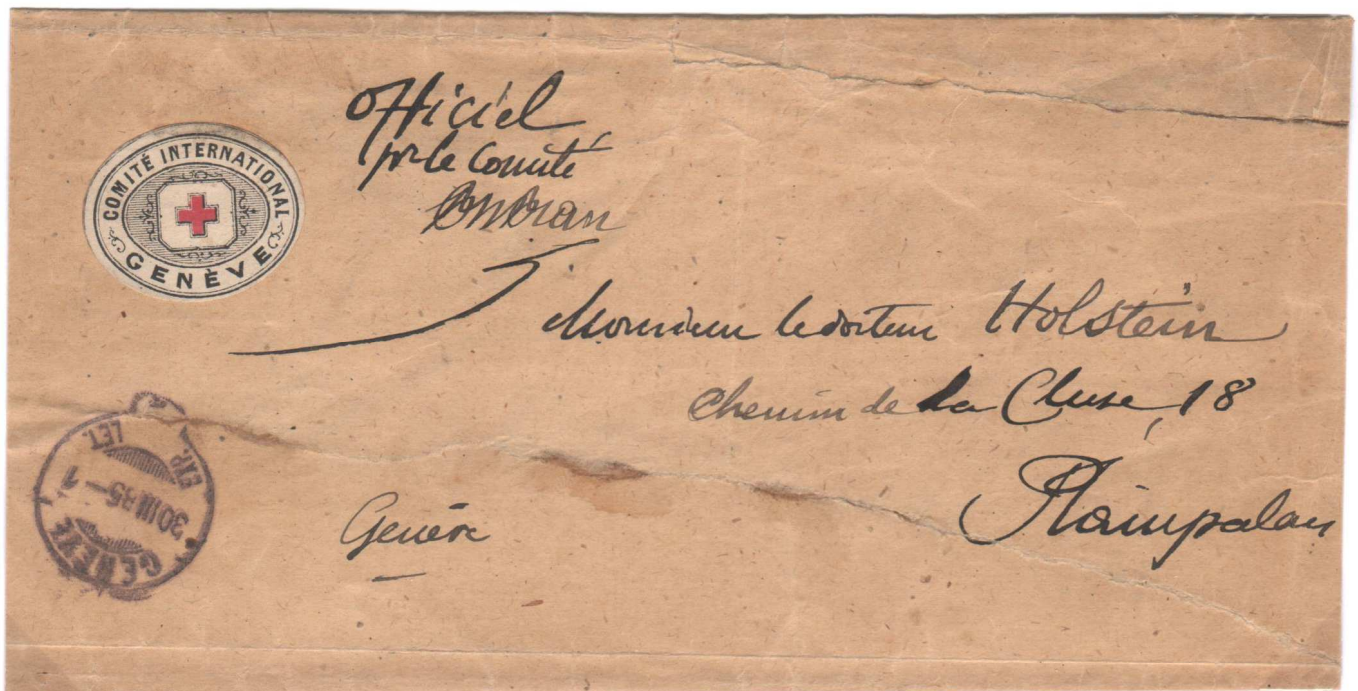 COMITÉ INTERNATIONAL
GENÈVE
Officiel
pr le Comité
Monsieur le docteur Holstein
Chemin de la Cluse, 18
Plainpalais
Genève
GENEVE
30 III 85 – 1
EXP. LET.